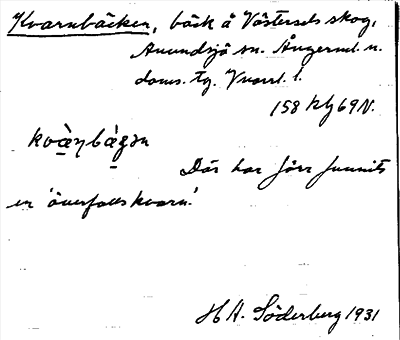 Kvarnbäcken, bäck å Västersels skog,
Anundsjö sn. Ångerml. n.
doms. tg. Vnorrl. l.
158 klg 69 N.
kvàṇbàgən
Där har förr funnits
en 'överfallskvarn.'
H A. Söderberg 1931